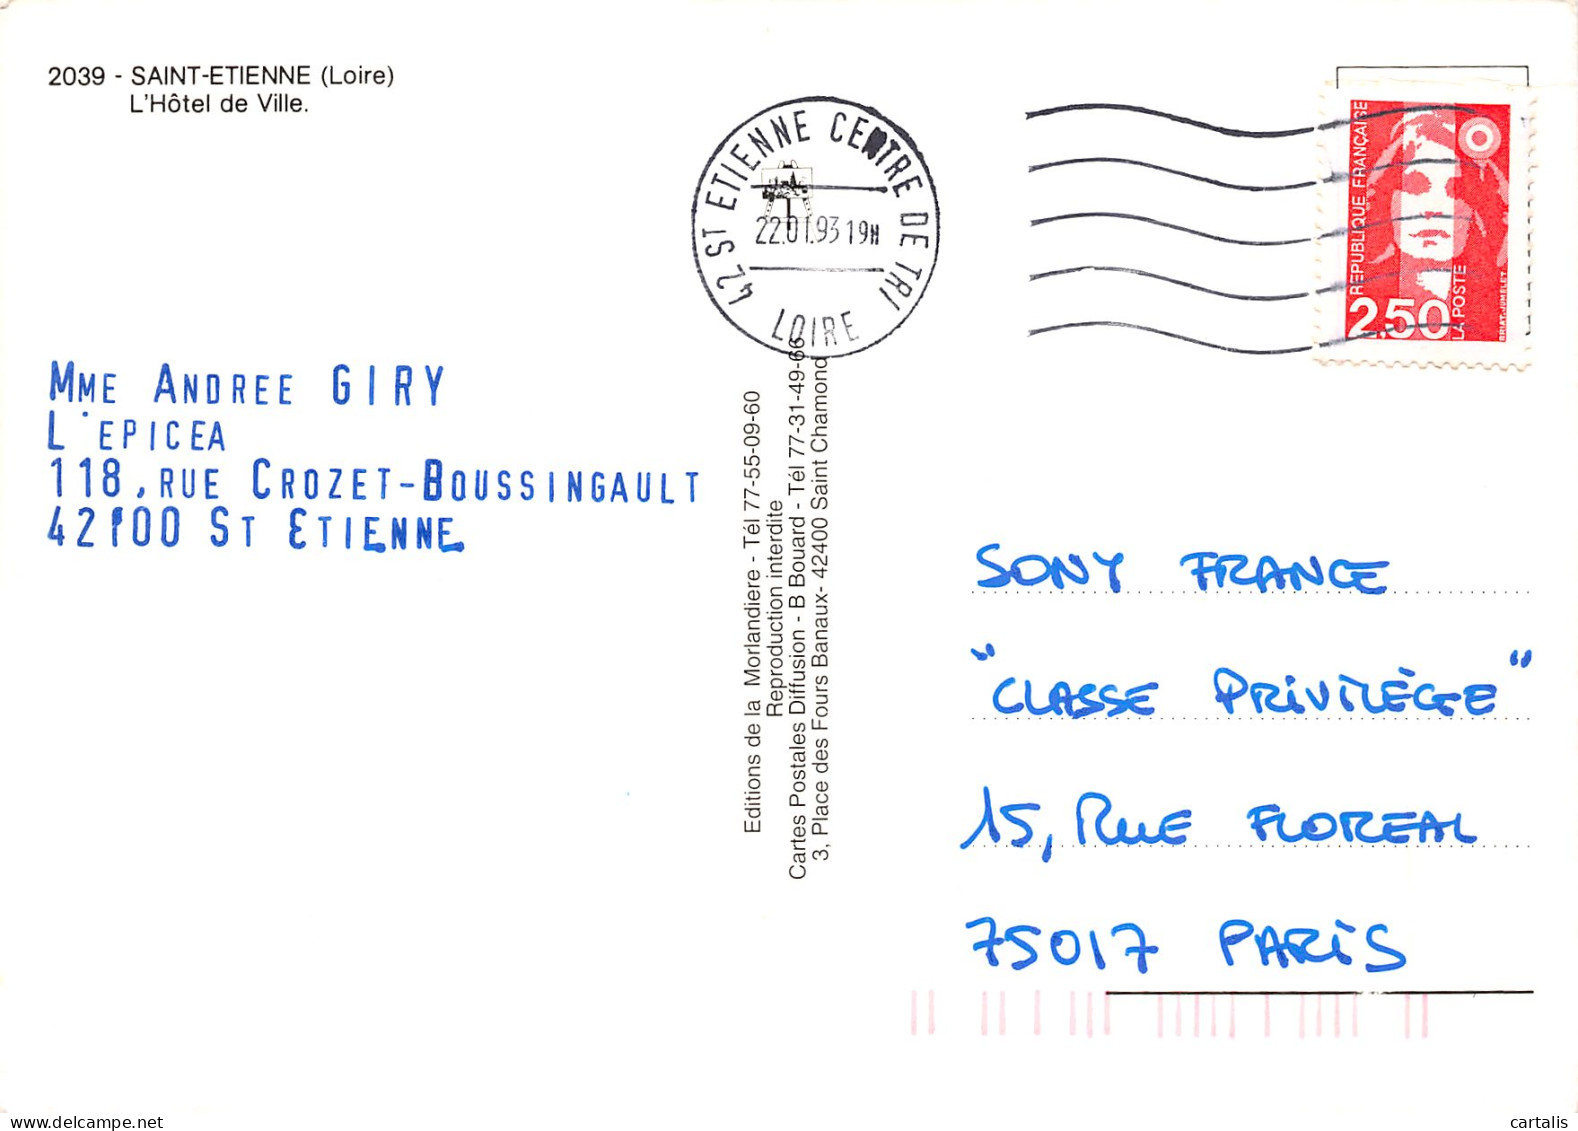 2039 - SAINT-ETIENNE (Loire)
L'Hôtel de Ville.
42 ST ETIENNE CENTRE DE TRI
22.01.93 19H
LOIRE
REPUBLIQUE FRANÇAISE
2,50
LA POSTE
BRIAT-JUMELET
MME ANDREE GIRY
L'EPICEA
118, RUE CROZET-BOUSSINGAULT
42100 ST ETIENNE
Editions de la Morlandiere - Tél 77-55-09-60
Reproduction interdite
Cartes Postales Diffusion - B Bouard - Tél 77-31-49-66
3, Place des Fours Banaux- 42400 Saint Chamond
SONY FRANCE
"CLASSE PRIVILÈGE"
15, RUE FLOREAL
75017 PARIS
delcampe.net
cartalis